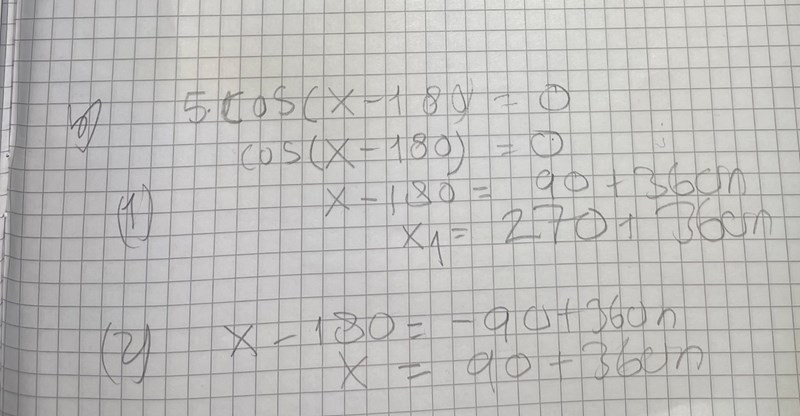 b) 5·cos(x-180) = 0
cos(x-180) = 0
(1) x-180 = 90+360n
x1 = 270+360n
(2) x-180 = -90+360n
x = 90+360n